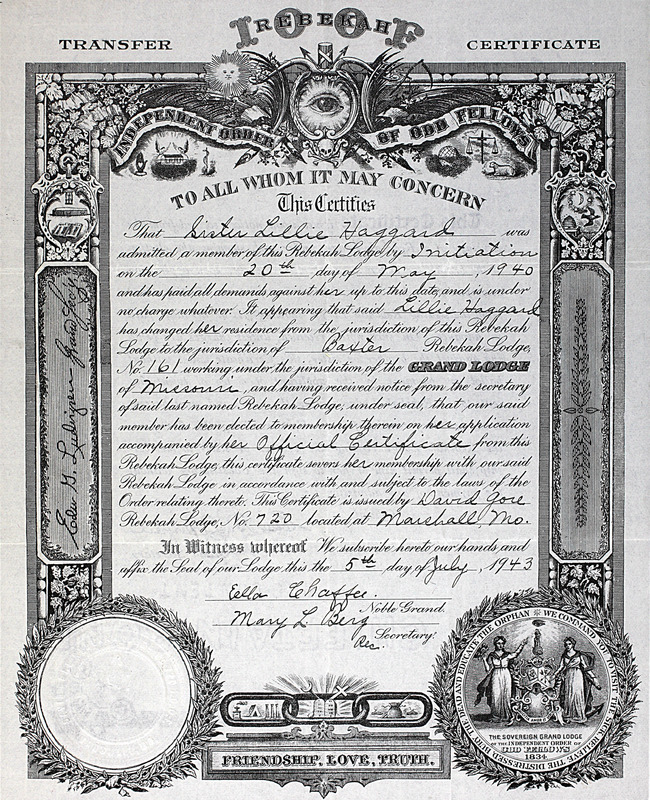 I REBEKAH O O F
TRANSFER CERTIFICATE
INDEPENDENT ORDER OF ODD FELLOWS
TO ALL WHOM IT MAY CONCERN
This Certifies
That Sister Lillie Haggard was
admitted a member of this Rebekah Lodge by Initiation
on the 20th day of May, 1940
and has paid all demands against her up to this date, and is under
no charge whatever. It appearing that said Lillie Haggard
has changed her residence from the jurisdiction of this Rebekah
Lodge to the jurisdiction of Baxter Rebekah Lodge,
No. 161 working under the jurisdiction of the GRAND LODGE
of Missouri, and having received notice from the secretary
of said last named Rebekah Lodge, under seal, that our said
member has been elected to membership therein on her application
accompanied by her Official Certificate from this
Rebekah Lodge, this certificate severs her membership with our said
Rebekah Lodge in accordance with and subject to the laws of the
Order relating thereto. This Certificate is issued by David Gore
Rebekah Lodge, No. 720 located at Marshall, Mo.
In Witness whereof We subscribe hereto our hands, and
affix the Seal of our Lodge this the 5th day of July, 1943
Ella Chaffee.
Noble Grand.
Mary L. Berg
Secretary.
Rec.
FRIENDSHIP, LOVE, TRUTH.
WE COMMAND YOU TO VISIT THE SICK, RELIEVE THE DISTRESSED, BURY THE DEAD AND EDUCATE THE ORPHAN
THE SOVEREIGN GRAND LODGE
OF THE INDEPENDENT ORDER OF
ODD FELLOWS
1834